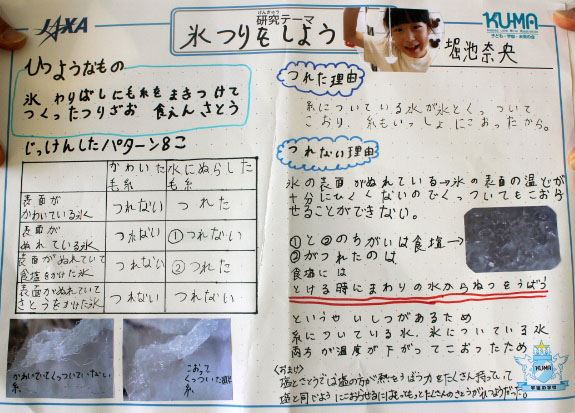 JAXA
けんきゅう
研究テーマ
氷つりをしよう
KUMA
子ども・宇宙・未来の会
堀池奈央
ひつようなもの
氷 わりばしにも糸をまきつけて
つくったつりざお 食えん さとう
じっけんしたパターン8こ
かわいた
も糸
水にぬらした
も糸
表面が
かわいている氷
つれない
つれた
表面が
ぬれている氷
つれない
①つれない
表面がぬれていて
食塩をかけた氷
つれない
②つれた
表面がぬれていて
さとうをかけた氷
つれない
つれない
かわいていてくっついていない
糸
こおって
くっついた
糸
つれた理由
糸についている水が氷とくっついて
こおり、糸もいっしょにこおったから。
つれない理由
氷の表面がぬれている→氷の表面の温どが
十分にひくくないのでくっついてもこおら
せることができない。
①と②のちがいは食塩→
②がつれたのは
食塩には
とける時にまわりの水からねつをうばう
というせいしつがあるため
糸についている水、氷についている水
両方が温度が下がってこおったため
<おまけ>
塩とさとうでは塩の方が熱をうばう力をたくさん持っていて
塩と同じようにこおらせるにはもっとたくさんのさとうがひつようだった。
KUMA
宇宙の学校